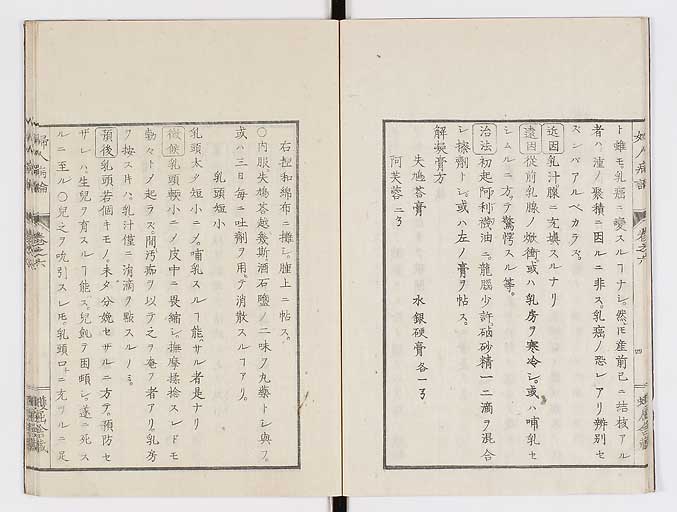 婦人病論 巻之六
四
ト雖モ乳癌ニ變スルヿナシ。然𪜈産前已ニ結核アル
者ハ湩ノ聚積ニ因ルニ非ス。乳癌ノ恐レアリ辨別セ
スンバアルベカラス。
近因乳汁腺ニ充填スルナリ
遠因從前乳腺ノ焮衝。或ハ乳房ヲ寒冷シ。或ハ哺乳セ
シムルニ方テ驚愕スル等。
治法初起阿利襪油ニ。龍腦少許。硇砂精一二滴ヲ混合
シ擦劑トシ。或ハ左ノ膏ヲ帖ス。
解凝膏方
失鳩荅膏 水銀硬膏各一ヲ
阿芙蓉二ヲ
右揑和綿布ニ攤シ。腫上ニ帖ス。
○内服失鳩荅越幾斯酒石鹽ノ二味ヲ丸藥トシ與フ。
或ハ三日每ニ吐劑ヲ用テ消散スルヿアリ。
乳頭短小
乳頭太タ短小ニメ。哺乳スルヿ能ハサル者是ナリ
徴候乳頭極小ニメ皮中ニ畏縮シ。撫摩揉捻スレドモ
勃々トメ起ラス。間汚垢ヲ以テ之ヲ奄フ者アリ。乳房
ヲ按ス片ハ。乳汁僅ニ涓滴ヲ㸃スルノミ。
預後乳頭若個キモノ。未タ分娩セサルニ方テ。預防セ
ザレハ。生兒ヲ育スルヿ能ス。兒飢ヲ困頓シ。遂ニ死ス
ルニ至ル○兒之ヲ吮引スレ𪜈。乳頭口ニ充ツルニ足
婦人病論 巻之六